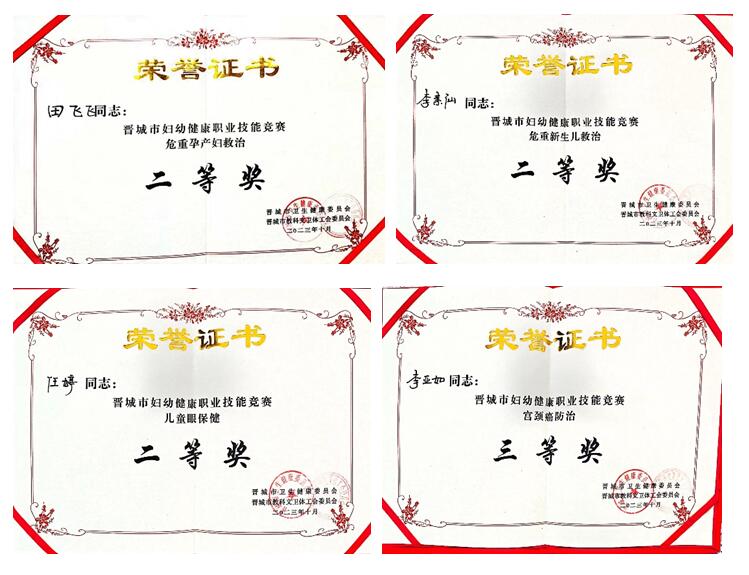 荣誉证书
田飞飞同志：
晋城市妇幼健康职业技能竞赛
危重孕产妇救治
二等奖
晋城市卫生健康委员会
晋城市教科文卫体工会委员会
二〇二三年十月
荣誉证书
同志：
晋城市妇幼健康职业技能竞赛
危重新生儿救治
二等奖
晋城市卫生健康委员会
晋城市教科文卫体工会委员会
二〇二三年十月
荣誉证书
汪婷同志：
晋城市妇幼健康职业技能竞赛
儿童眼保健
二等奖
晋城市卫生健康委员会
晋城市教科文卫体工会委员会
二〇二三年十月
荣誉证书
李亚如同志：
晋城市妇幼健康职业技能竞赛
宫颈癌防治
三等奖
晋城市卫生健康委员会
晋城市教科文卫体工会委员会
二〇二三年十月